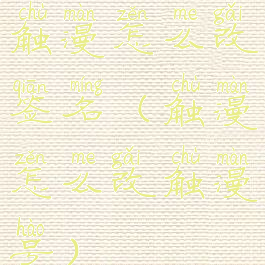 chù màn zěn me gǎi
触漫怎么改
qiān míng chù màn
签名（触漫
zěn me gǎi chù màn
怎么改触漫
hào
号）